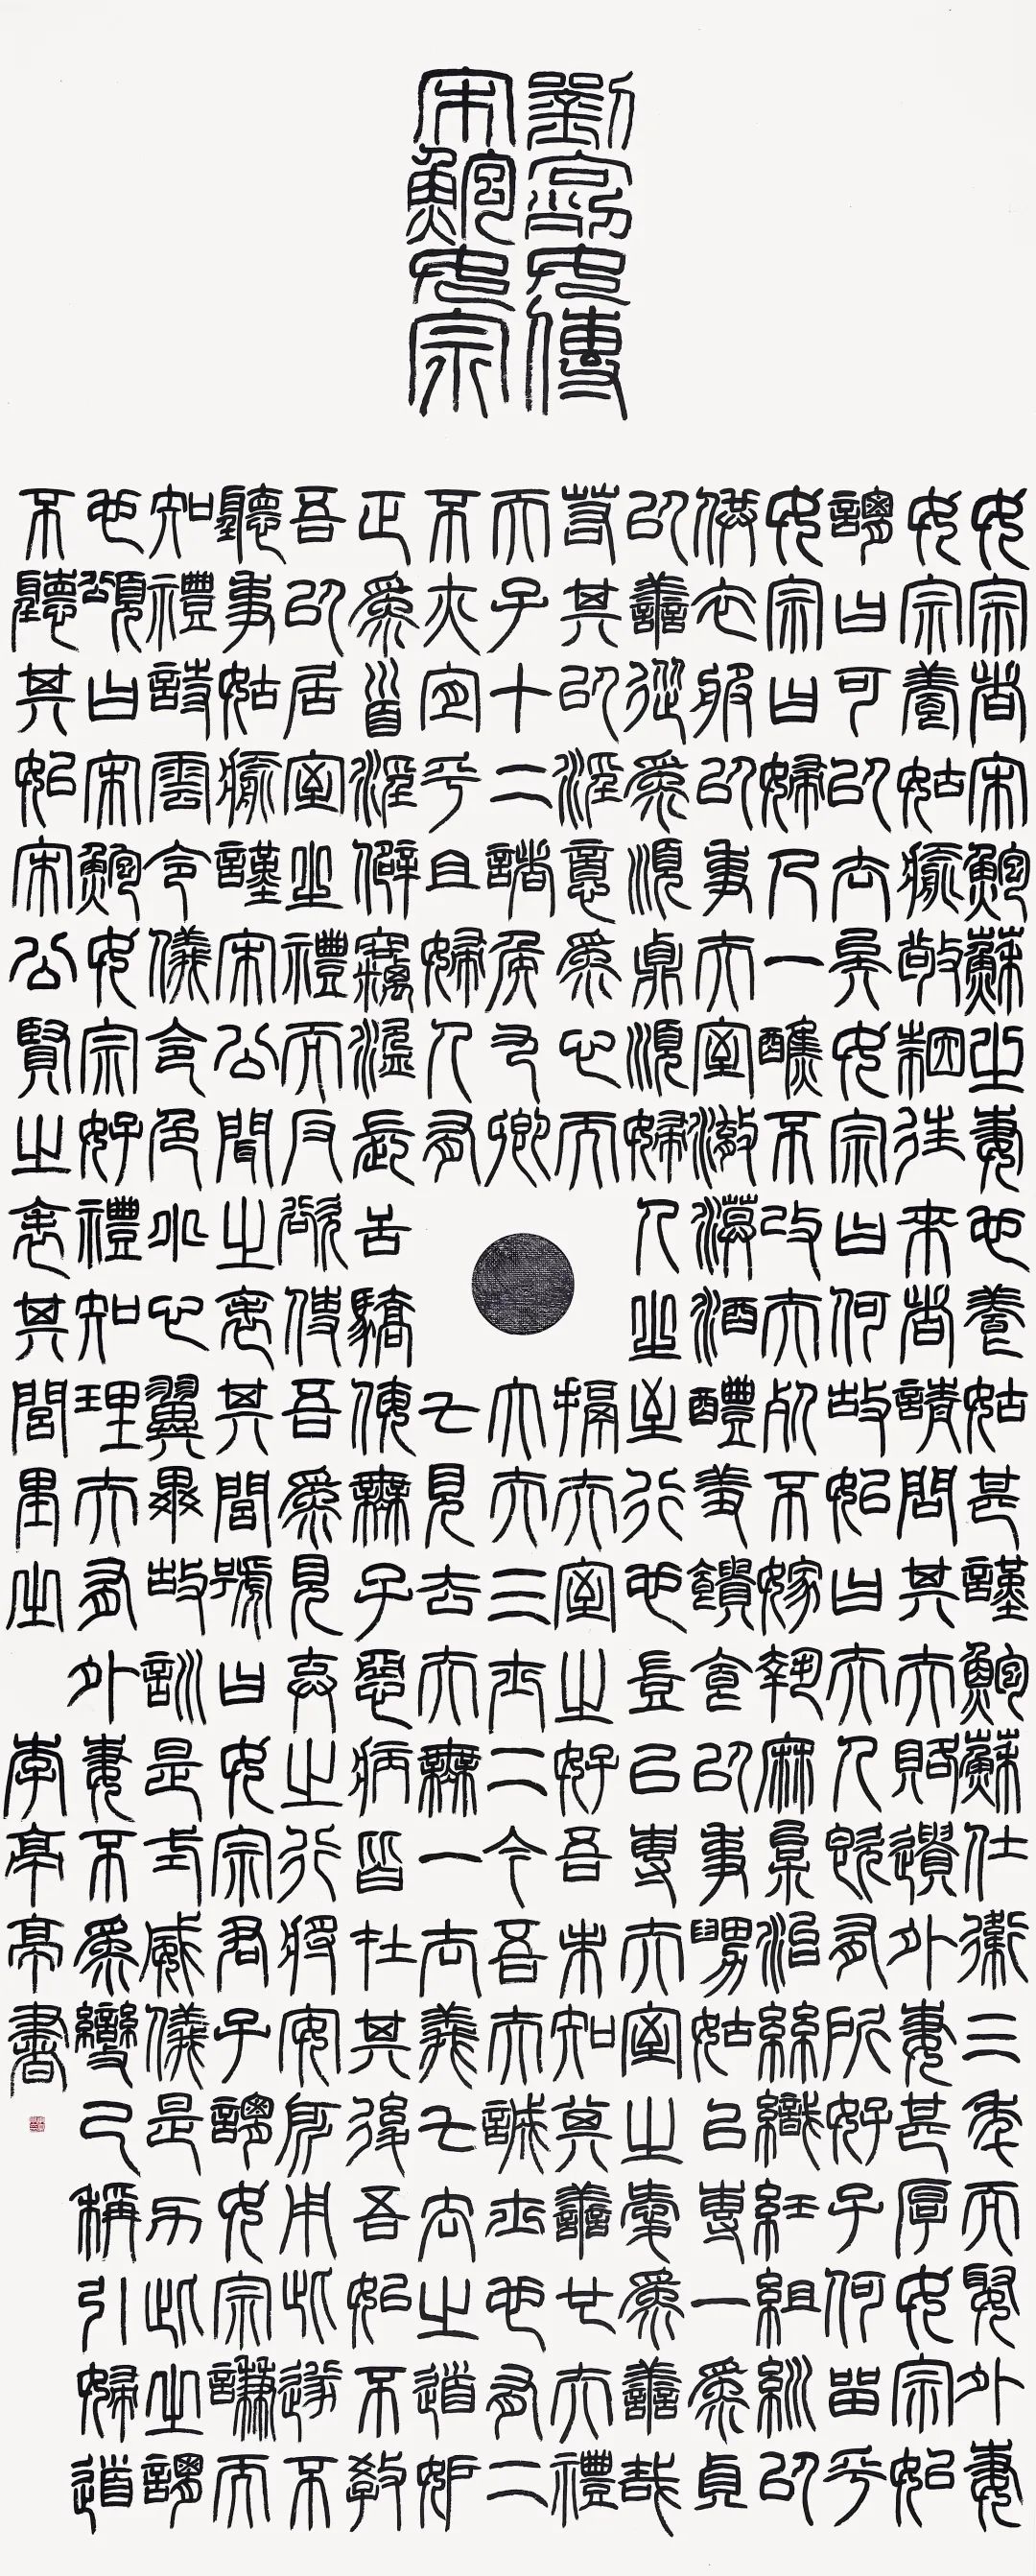 劉向列女傳
宋鮑女宗
女宗者宋鮑蘇之妻也養姑甚謹鮑蘇仕衛三年而娶外妻
女宗養姑瘉敬因往来者請問其夫賂遺外妻甚厚女宗姒
謂曰可以去矣女宗曰何故姒曰夫人既有所好子何留乎
女宗曰婦人一醮不改夫死不嫁執麻枲治絲織紝組紃以
供衣服以事夫室澈漠酒醴羞饋食以事舅姑以專一為貞
以善從為順貞順婦人之至行也豈以專夫室之愛為善哉
若其以淫意為心而搹夫室之好吾未知其善也夫禮
天子十二諸侯九卿大夫三士二今吾夫誠士也有二
不亦宜乎且婦人有七見去夫無一去義七去之道妒
正為首淫僻竊盜長舌驕侮無子惡病皆在其後吾姒不教
吾以居室之禮而反欲使吾為見棄之行將安所用此遂不
聽事姑瘉謹宋公聞之表其閭號曰女宗君子謂女宗謙而
知禮詩雲令儀令色小心翼翼故訓是式威儀是力此之謂
也頌曰宋鮑女宗好禮知理夫有外妻不為變己稱引婦道
不聽其姒宋公賢之表其閭里之
李亭亭書